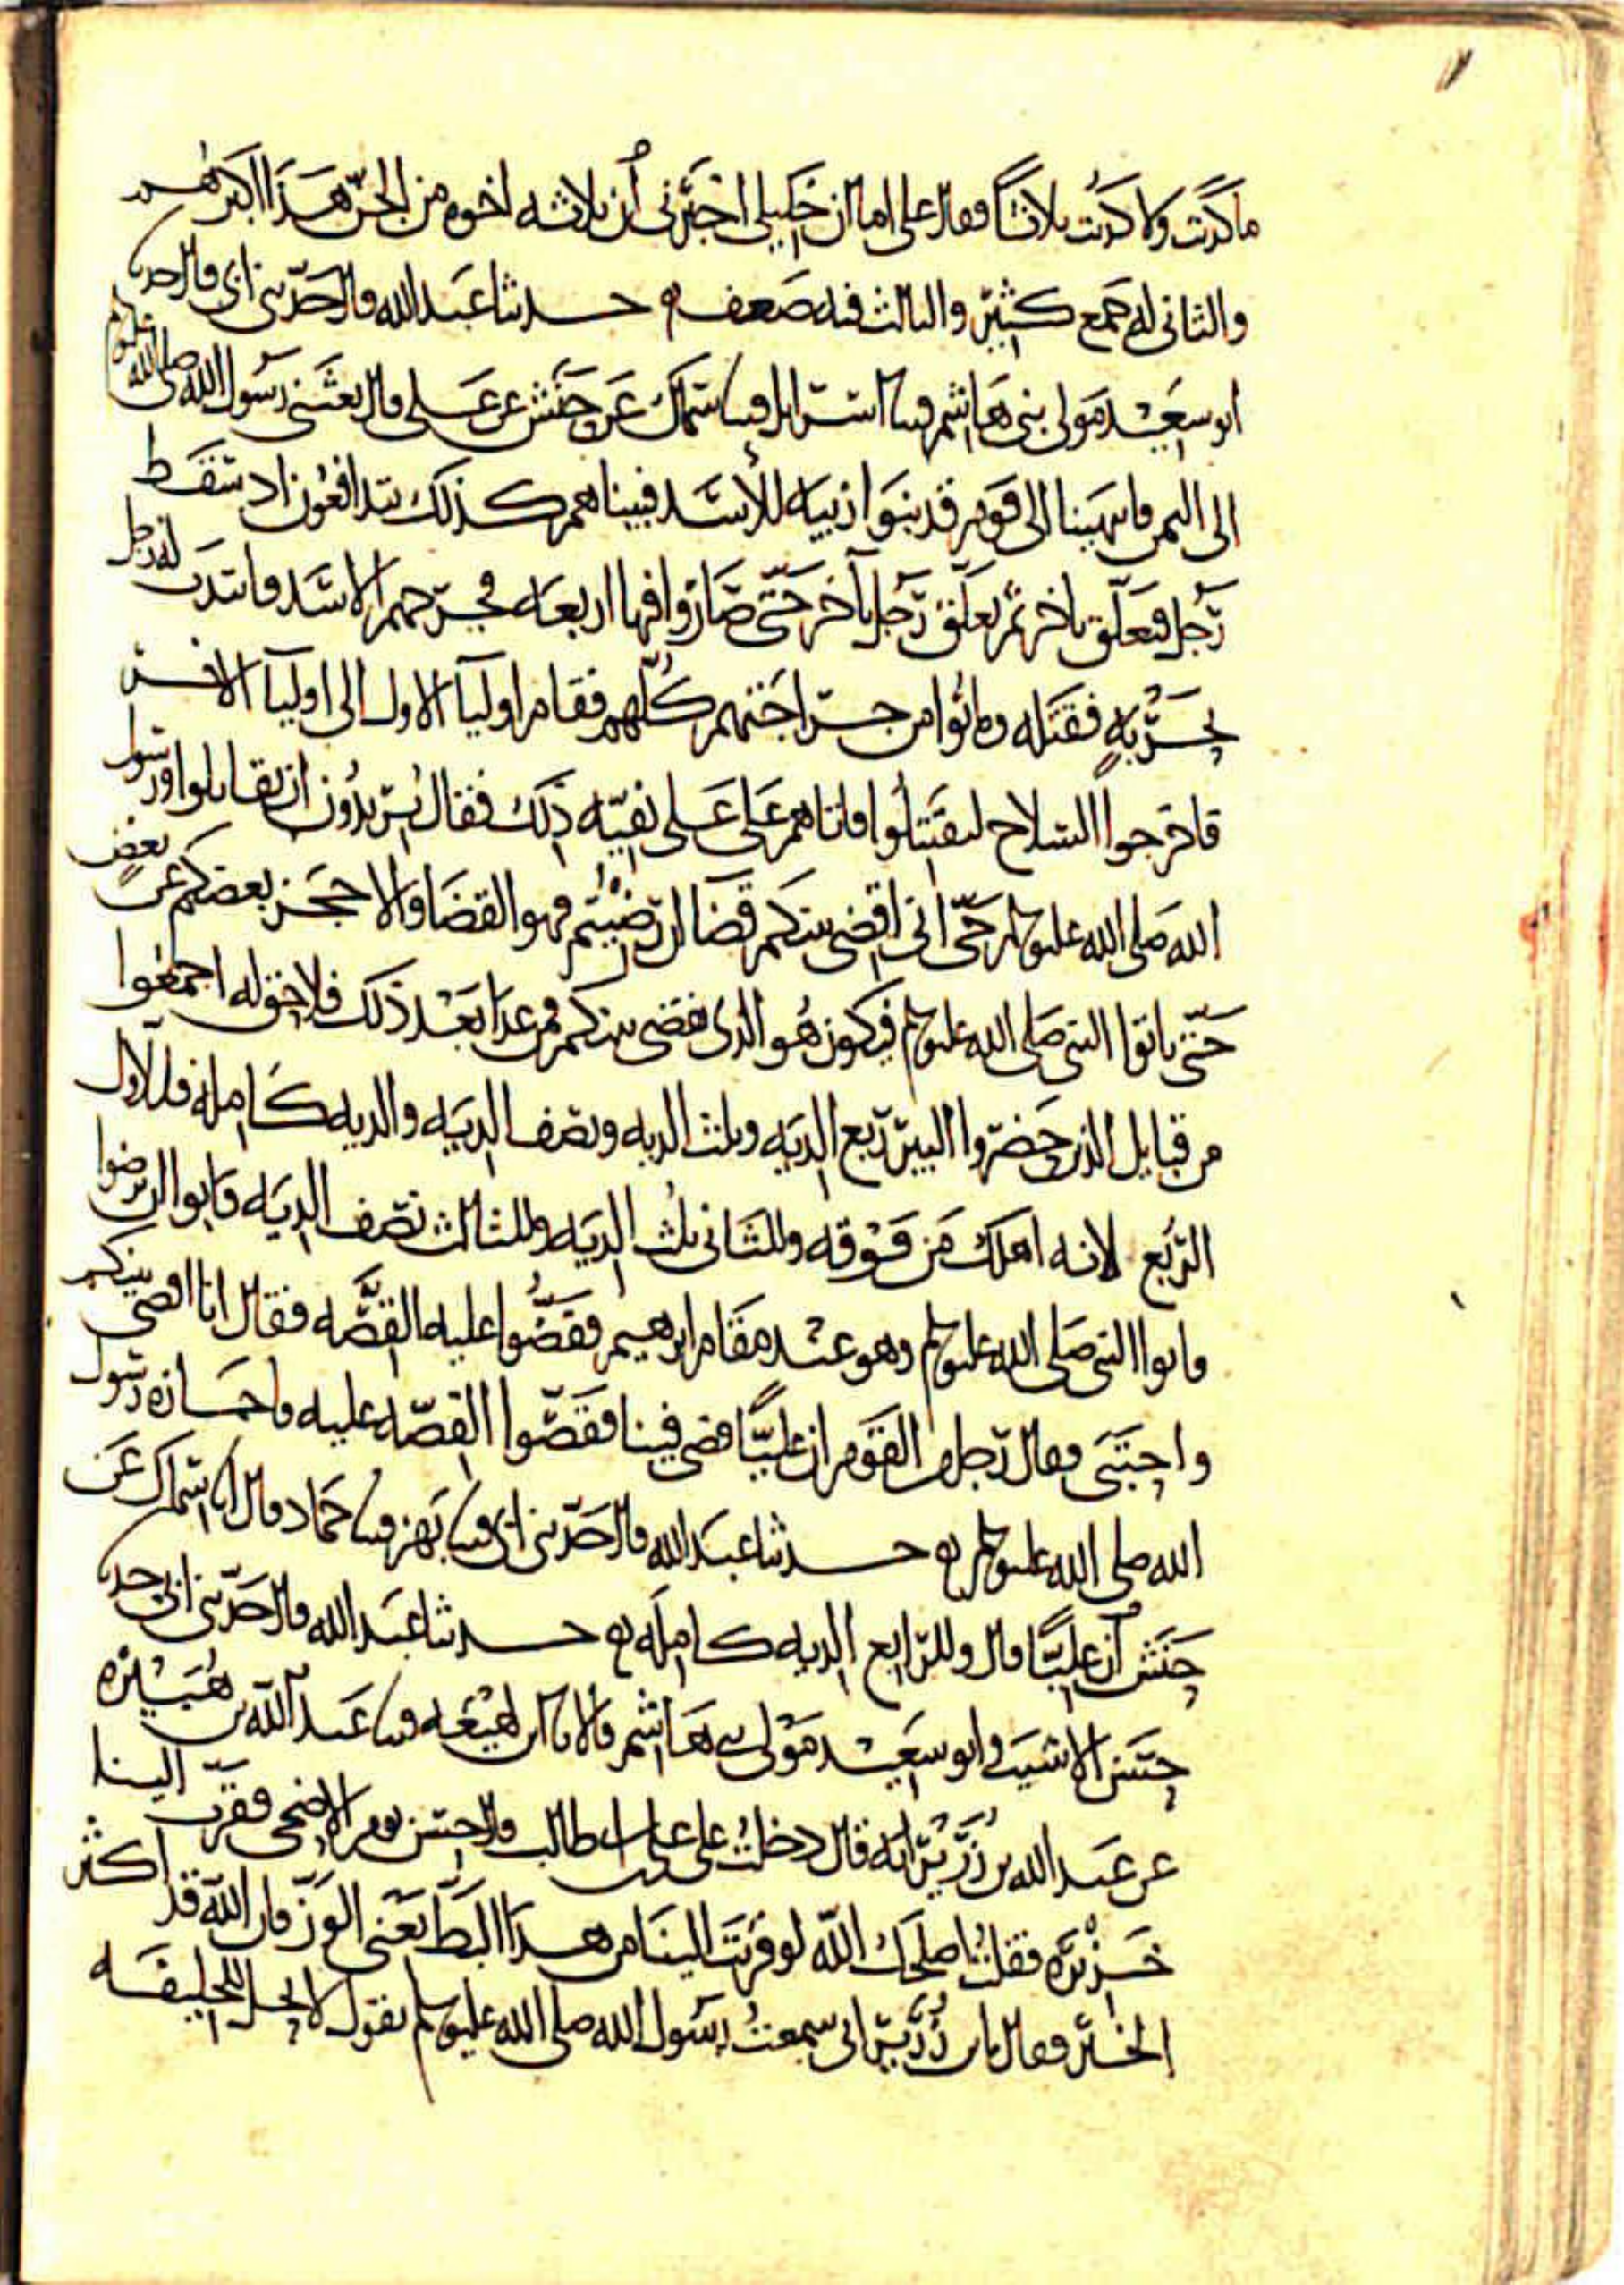 ما كذبت ولا كذبت ثلاثًا فقال علي اما ان خليلي اخبرني أن ثلاثه اخوه من الجنّ هَذا اكبرهم
والثاني له جمع كثير والثالث فيه ضعف ه حدثنا عبد الله قال حدّثني ابي قال حدثنا
ابو سعيد مولى بني هاشم قثنا اسرايل قثنا سماك عن حنش عن علي قال بعثني رسول الله صلى الله عليه وسلم
الى اليمن فانتهينا الى قوم قد بنوا زبيه للأسد فبينا هم كذلك يتدافعون اذ سقط
رجل فتعلّق باخر ثم تعلّق رجل بآخر حتّى صاروا فيها اربعه فجرّحهم الاسد فانتدب له رجل
بحربه فقتله وماتوا من جراحتهم كلّهم فقام اوليا الاول الى اوليا الاخر
فاخرجوا السلاح ليقتتلوا فاتاهم علي على تفيّه ذلك فقال تريدون ان تقاتلوا ورسول
الله صلى الله عليه وسلم حيّ اني اقضي بينكم قضا ان رضيتم فهو القضا والا حجز بعضكم عن بعض
حتّى ياتوا النبي صلى الله عليه وسلم فيكون هو الذي يقضي بينكم فمن عدا بعد ذلك فلا حق له اجمعوا
من قبايل الذين حضروا البير ربع الديه وثلث الديه ونصف الديه والديه كامله فللاول
الربع لانه اهلك من فوقه وللثاني ثلث الديه وللثالث نصف الديه فابوا ان يرضوا
فاتوا النبي صلى الله عليه وسلم وهو عند مقام ابرهيم فقصّوا عليه القصّه فقال انا اقضي بينكم
واحتبى فقال رجل من القوم ان عليًّا قضى فينا فقصّوا القصّه عليه فاجازه رسول
الله صلى الله عليه وسلم ه حدثنا عبد الله قال حدّثني ابي قثنا بهز قثنا حماد قال انا سماك عن
حنش أن عليًّا قال وللرابع الديه كامله ه حدثنا عبد الله قال حدّثني ابي حدثنا
حسن الاشيب وابو سعيد مولى بني هاشم قالا نا ابن لهيعه قثنا عبد الله بن هبيره
عن عبد الله بن زُرير انه قال دخلت على علي بن ابي طالب قال حسن يوم الاضحى فقرّب الينا
خزيره فقلت اصلحك الله لو قربت الينا من هذا البط يعني الوز فان الله قد اكثر
الخير فقال يا بن زُرير اني سمعت رسول الله صلى الله عليه وسلم يقول لا يحل للخليفه